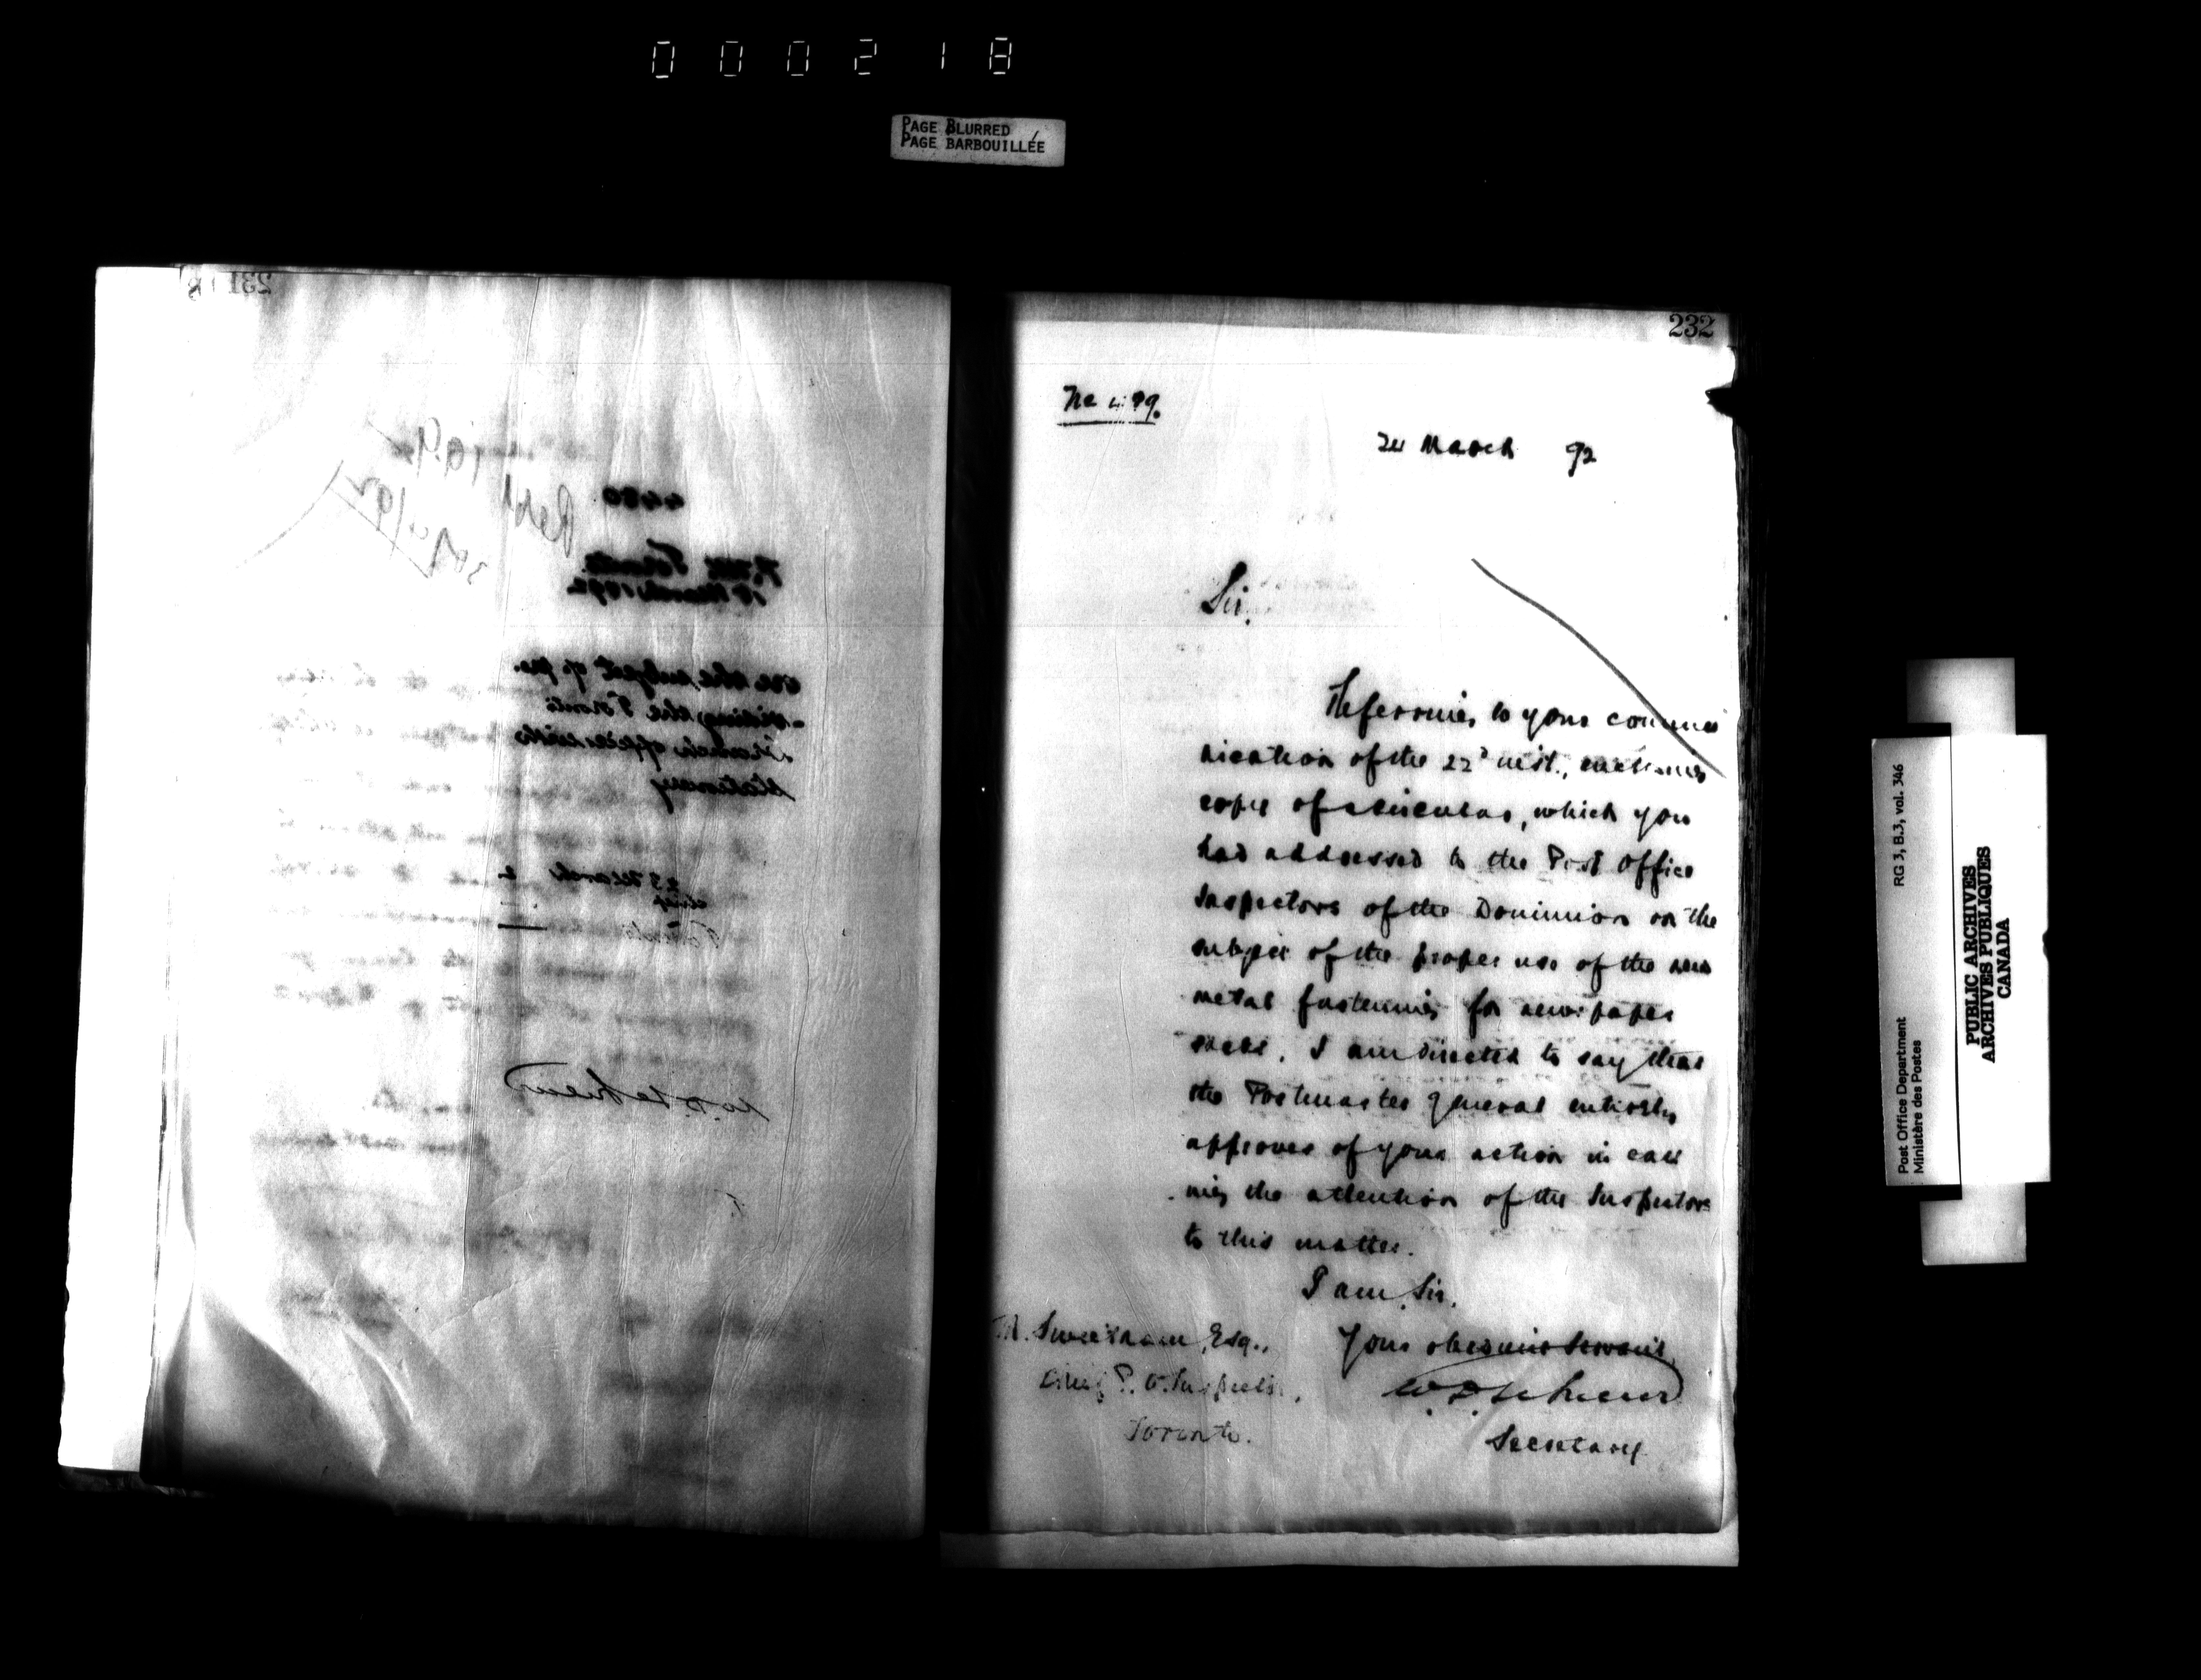 000218
PAGE BLURRED
PAGE BARBOUILLÉE
231
4480
Toronto
18 March 1892
on the subject of pro-
-viding the Toronto
Branch offices with
stationery
23 March 2
Chief
Toronto
W. D. LeSueur
232
No
24 March 92
Sir,
Referring to your commu
nication of the 22d inst., enclosing
copy of a circular, which you
had addressed to the Post Office
Inspectors of the Dominion on the
subject of the proper use of the new
metal fastening for newspaper
sacks, I am directed to say that
the Postmaster General entirely
approves of your action in call
ing the attention of the Inspectors
to this matter.
I am, Sir,
Your obedient Servant,
W. D. LeSueur
Secretary
M. Sweetnam, Esq.,
Chief P. O. Inspector,
Toronto.
Post Office Department
Ministère des Postes
RG 3, B.3, vol. 346
PUBLIC ARCHIVES
ARCHIVES PUBLIQUES
CANADA